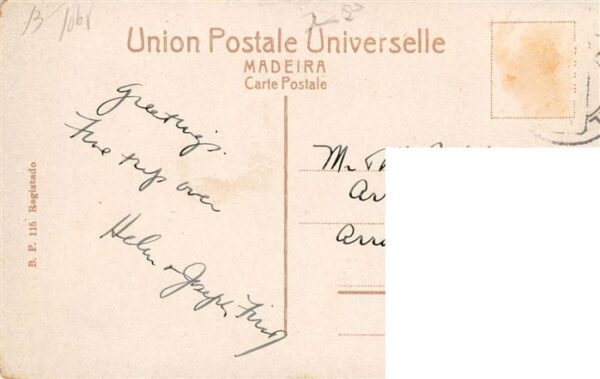 Union Postale Universelle
MADEIRA
Carte Postale
Greetings.
Fine trip over
Helen & Joseph
B. P. 115 Registado
Mr